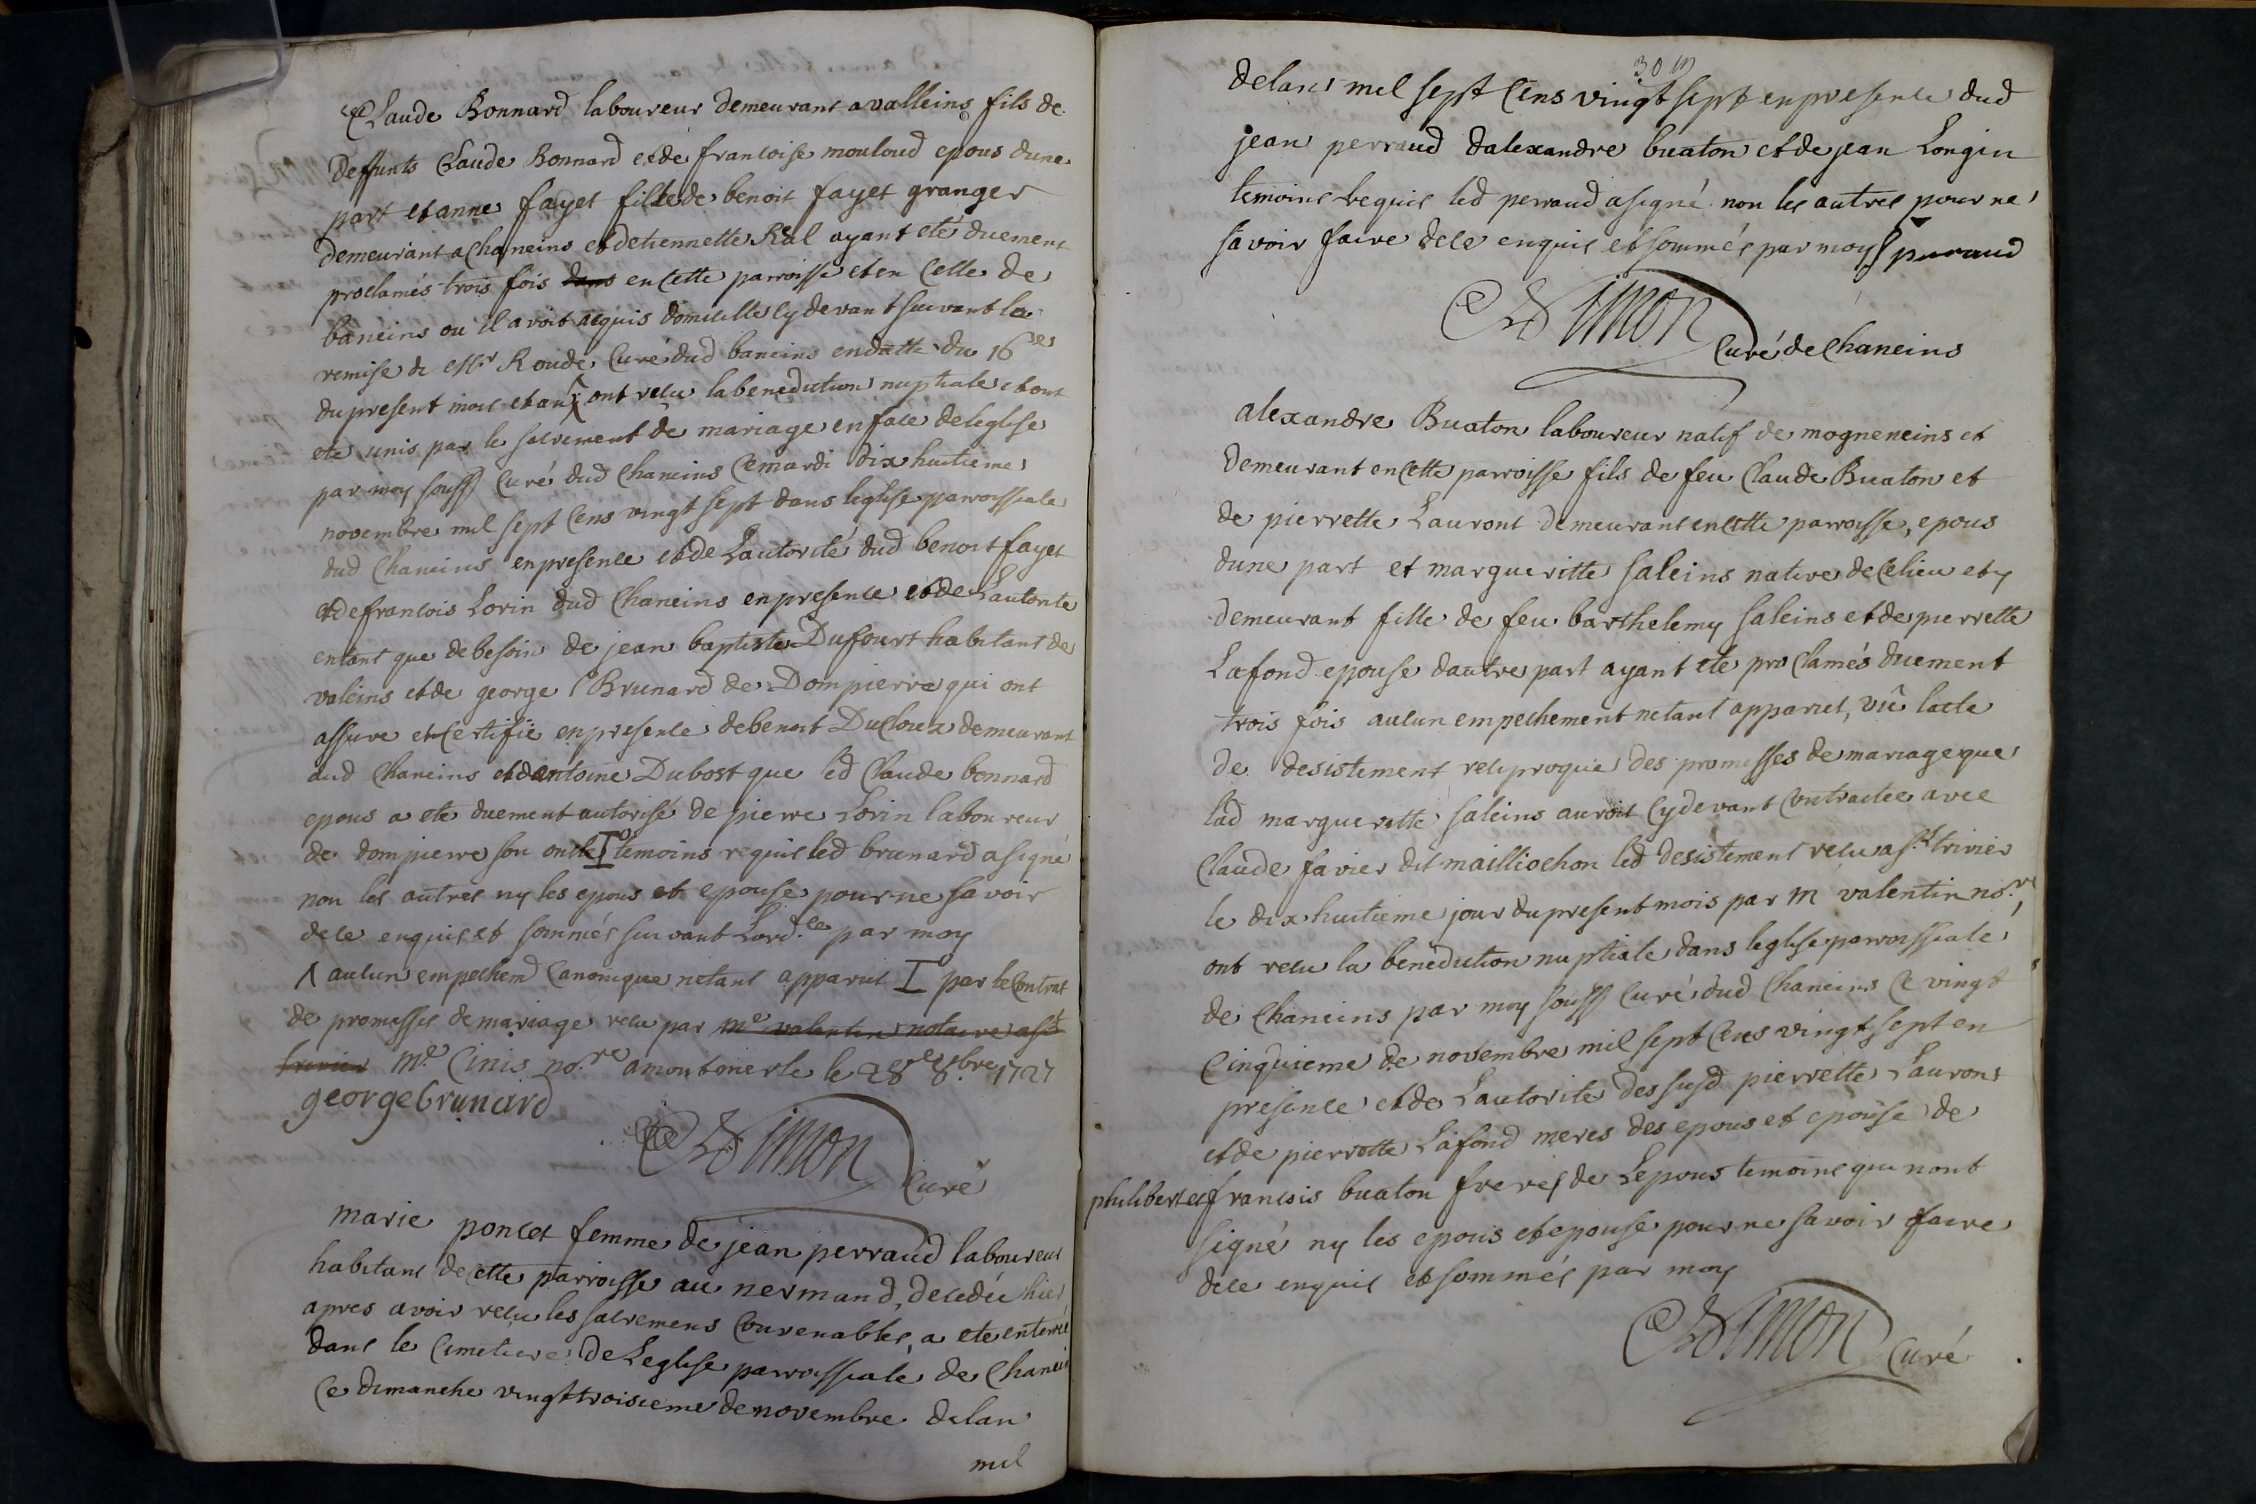 Claude Bonnard laboureur demeurant a valleins fils de
deffunts Claude Bonnard et de francoise mouloud epous dune
part et anne fayet fille de benoit fayet granger
demeurant a Chaneins et detiennette Réal ayant eté duement
proclamés trois fois dans en cette parroisse et en celle de
baneins ou il avoit acquis domicille cy devant suivant la
remise de Mr Roude Curé dud baneins en datte du 16e
du present mois et an Λ ont recu la benediction nuptiale et ont
ete unis par le sacrement de mariage en face de leglise
par moy souss Curé dud Chaneins Ce mardi dix huitieme
novembre mil sept Cens vingt sept dans leglise parroissiale
dud Chaneins en presence et de Lautorité dud benoit fayet
et de francois Lorin dud Chaneins en presence et de Lautorite
en tant que de besoin de jean baptiste Dufourt habitant de
valeins et de george Brunard de Dompierre qui ont
assure et Certifié en presence de benoit Ducloux demeurant
aud Chaneins et dantoine Dubost que led Claude bonnard
epous a ete duement autorisé de pierre Lorin laboureur
de dompierre son oncle I temoins requis led brunard a signé
non les autres ny les epous et epouse pour ne savoir
de ce enquis et sommés suivant Lord.ce par moy
Λ aucun empechemt Canonique netant apparut I par le Contrat
de promesses de mariage recu par me valentin notaire a st
trivier Me Cinis no.re a montmerle le 28e 8bre 1727
george brunard
Simon
Curé
marie poncet femme de jean perraud laboureur
habitant de cette parroisse au nermand, decedée hier
apres avoir recu les sacremens Convenables, a ete enterré
dans le Cimetiere de Leglise parroissiale de Chanein
Ce dimanche vingt troisieme de novembre de lan
mil
30
de lans mil sept Cens vingt sept en presence dud
jean perraud dalexandre buaton et de jean Longin
temoins requis led perraud a signé non les autres pour ne
savoir faire de ce enquis et sommés par moy perraud
Simon
Curé de Chaneins
alexandre Buaton laboureur natif de mogneneins et
demeurant en cette parroisse fils de feu Claude Buaton et
de pierrette Lauront demeurant en cette parroisse, epous
dune part et margueritte saleins native de ce lieu et y
demeurant fille de feu barthelemy saleins et de pierrette
Lafond epouse dautre part ayant ete proclamés duement
trois fois aucun empechement netant apparut, vû lacte
de desistement reciproque des promesses de mariage que
lad margueritte saleins auroit cy devant Contractee avec
Claude favier dit mailliochon led desistement recu a st trivier
le dix huitieme jour du present mois par m valentin no.re
ont recu la benediction nuptiale dans leglise parroissiale
de Chaneins par moy souss Curé dud Chaneins Ce vingt
Cinquieme de novembre mil sept Cens vingt sept en
presence et de Lautorite des susd pierrette Lauront
et de pierrette Lafond meres des epous et epouse de
philibert et francois buaton freres de Lepous temoins qui nont
signé ny les epous et epouse pour ne savoir faire
de ce enquis et sommés par moy
Simon Curé